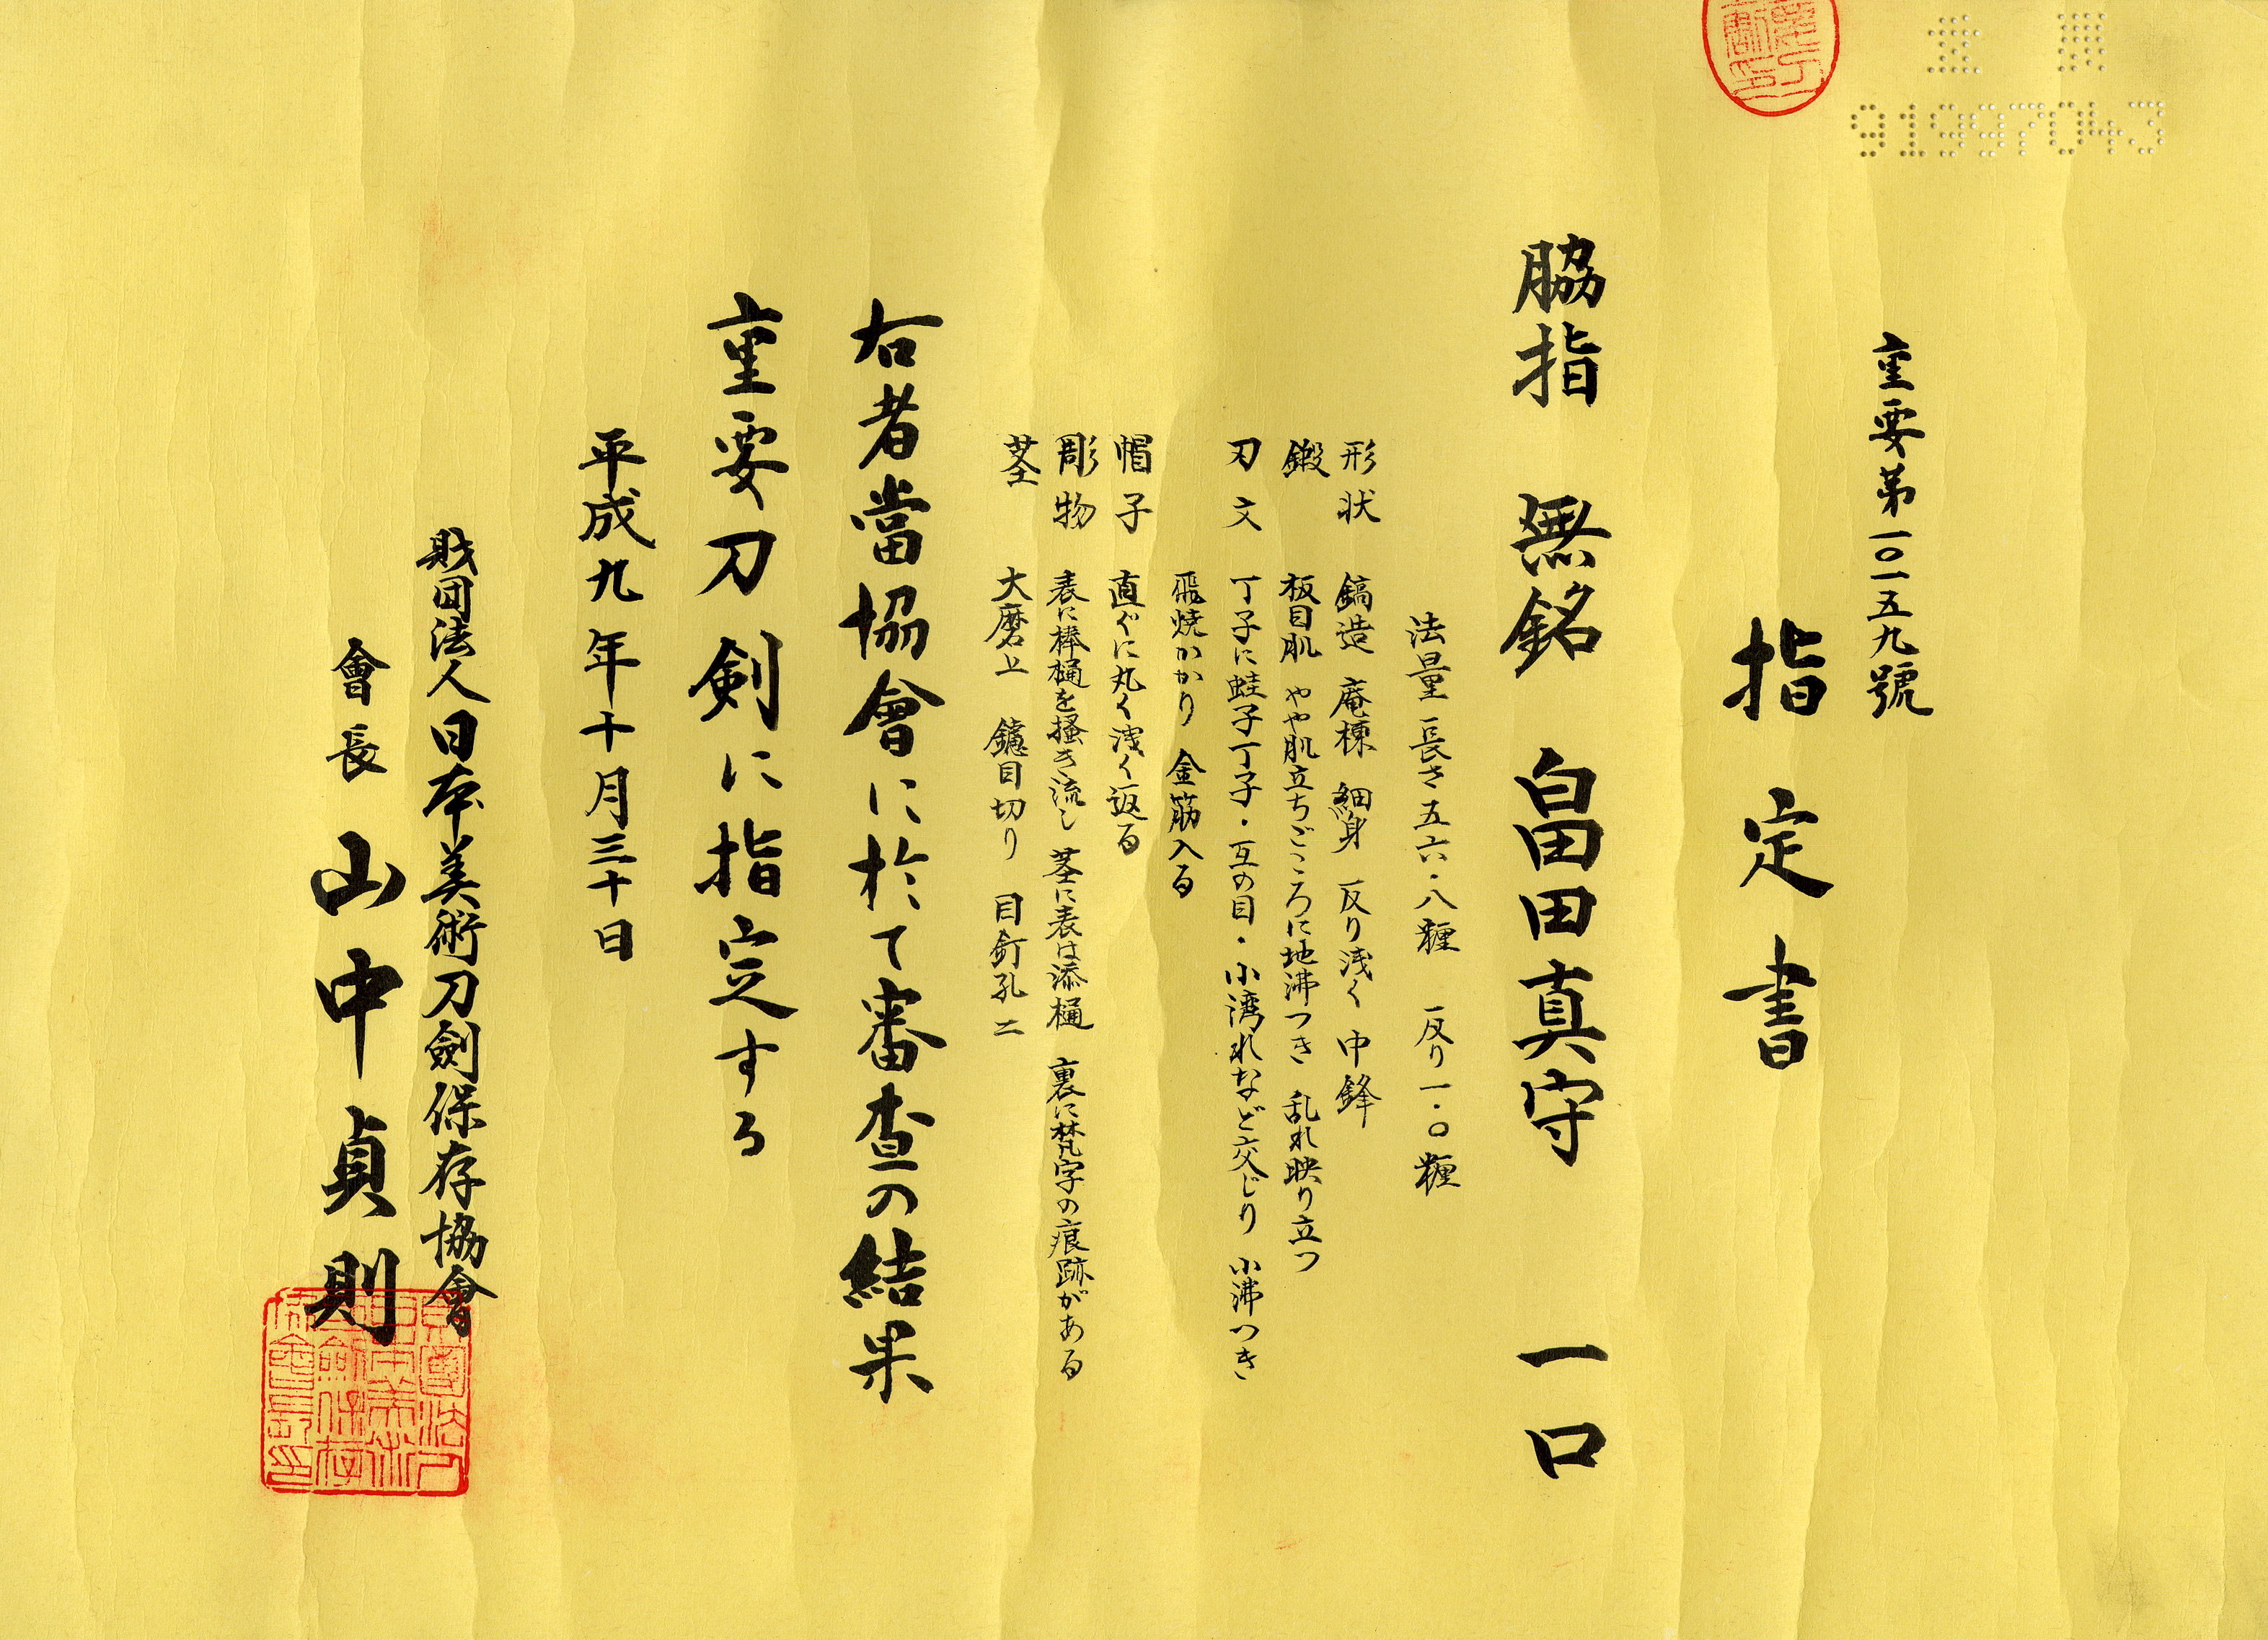 重要第一〇一五九號
指定書
脇指 無銘 畠田真守 一口
法量 長さ五六・八糎 反り一・〇糎
形状 鎬造 庵棟 細身 反り浅く 中鋒
鍛 板目肌 やや肌立ちごころに地沸つき 乱れ映り立つ
刃文 丁子に蛙子丁子・互の目・小湾れなど交じり 小沸つき
飛焼かかり 金筋入る
帽子 直ぐに丸く浅く返る
彫物 表に棒樋を掻き流し 茎に表は添樋 裏に梵字の痕跡がある
茎 大磨上 鑢目切り 目釘孔二
右者當協會に於て審査の結果
重要刀剣に指定する
平成九年十月三十日
財団法人日本美術刀劍保存協會
會長 山中貞則
91997043